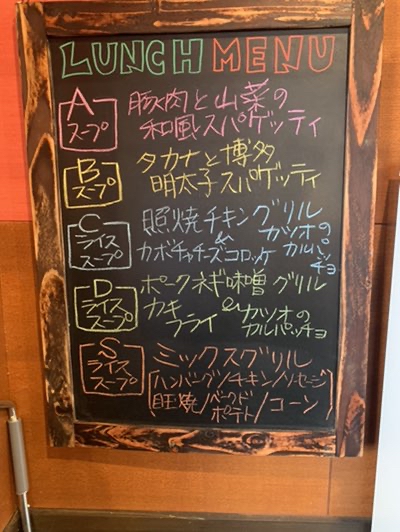 LUNCH MENU
A
スープ
豚肉と山菜の
和風スパゲッティ
B
スープ
タカナと博多
明太子スパゲッティ
C
ライス
スープ
照焼チキングリル
&
カボチャチーズコロッケ
カツオの
カルパッ
チョ
D
ライス
スープ
ポークネギ味噌グリル
カキ
フライ
&
カツオの
カルパッチョ
S
ライス
スープ
ミックスグリル
(ハンバーグ/チキン/ソーセージ
目玉焼/ベークド
ポテト/コーン)